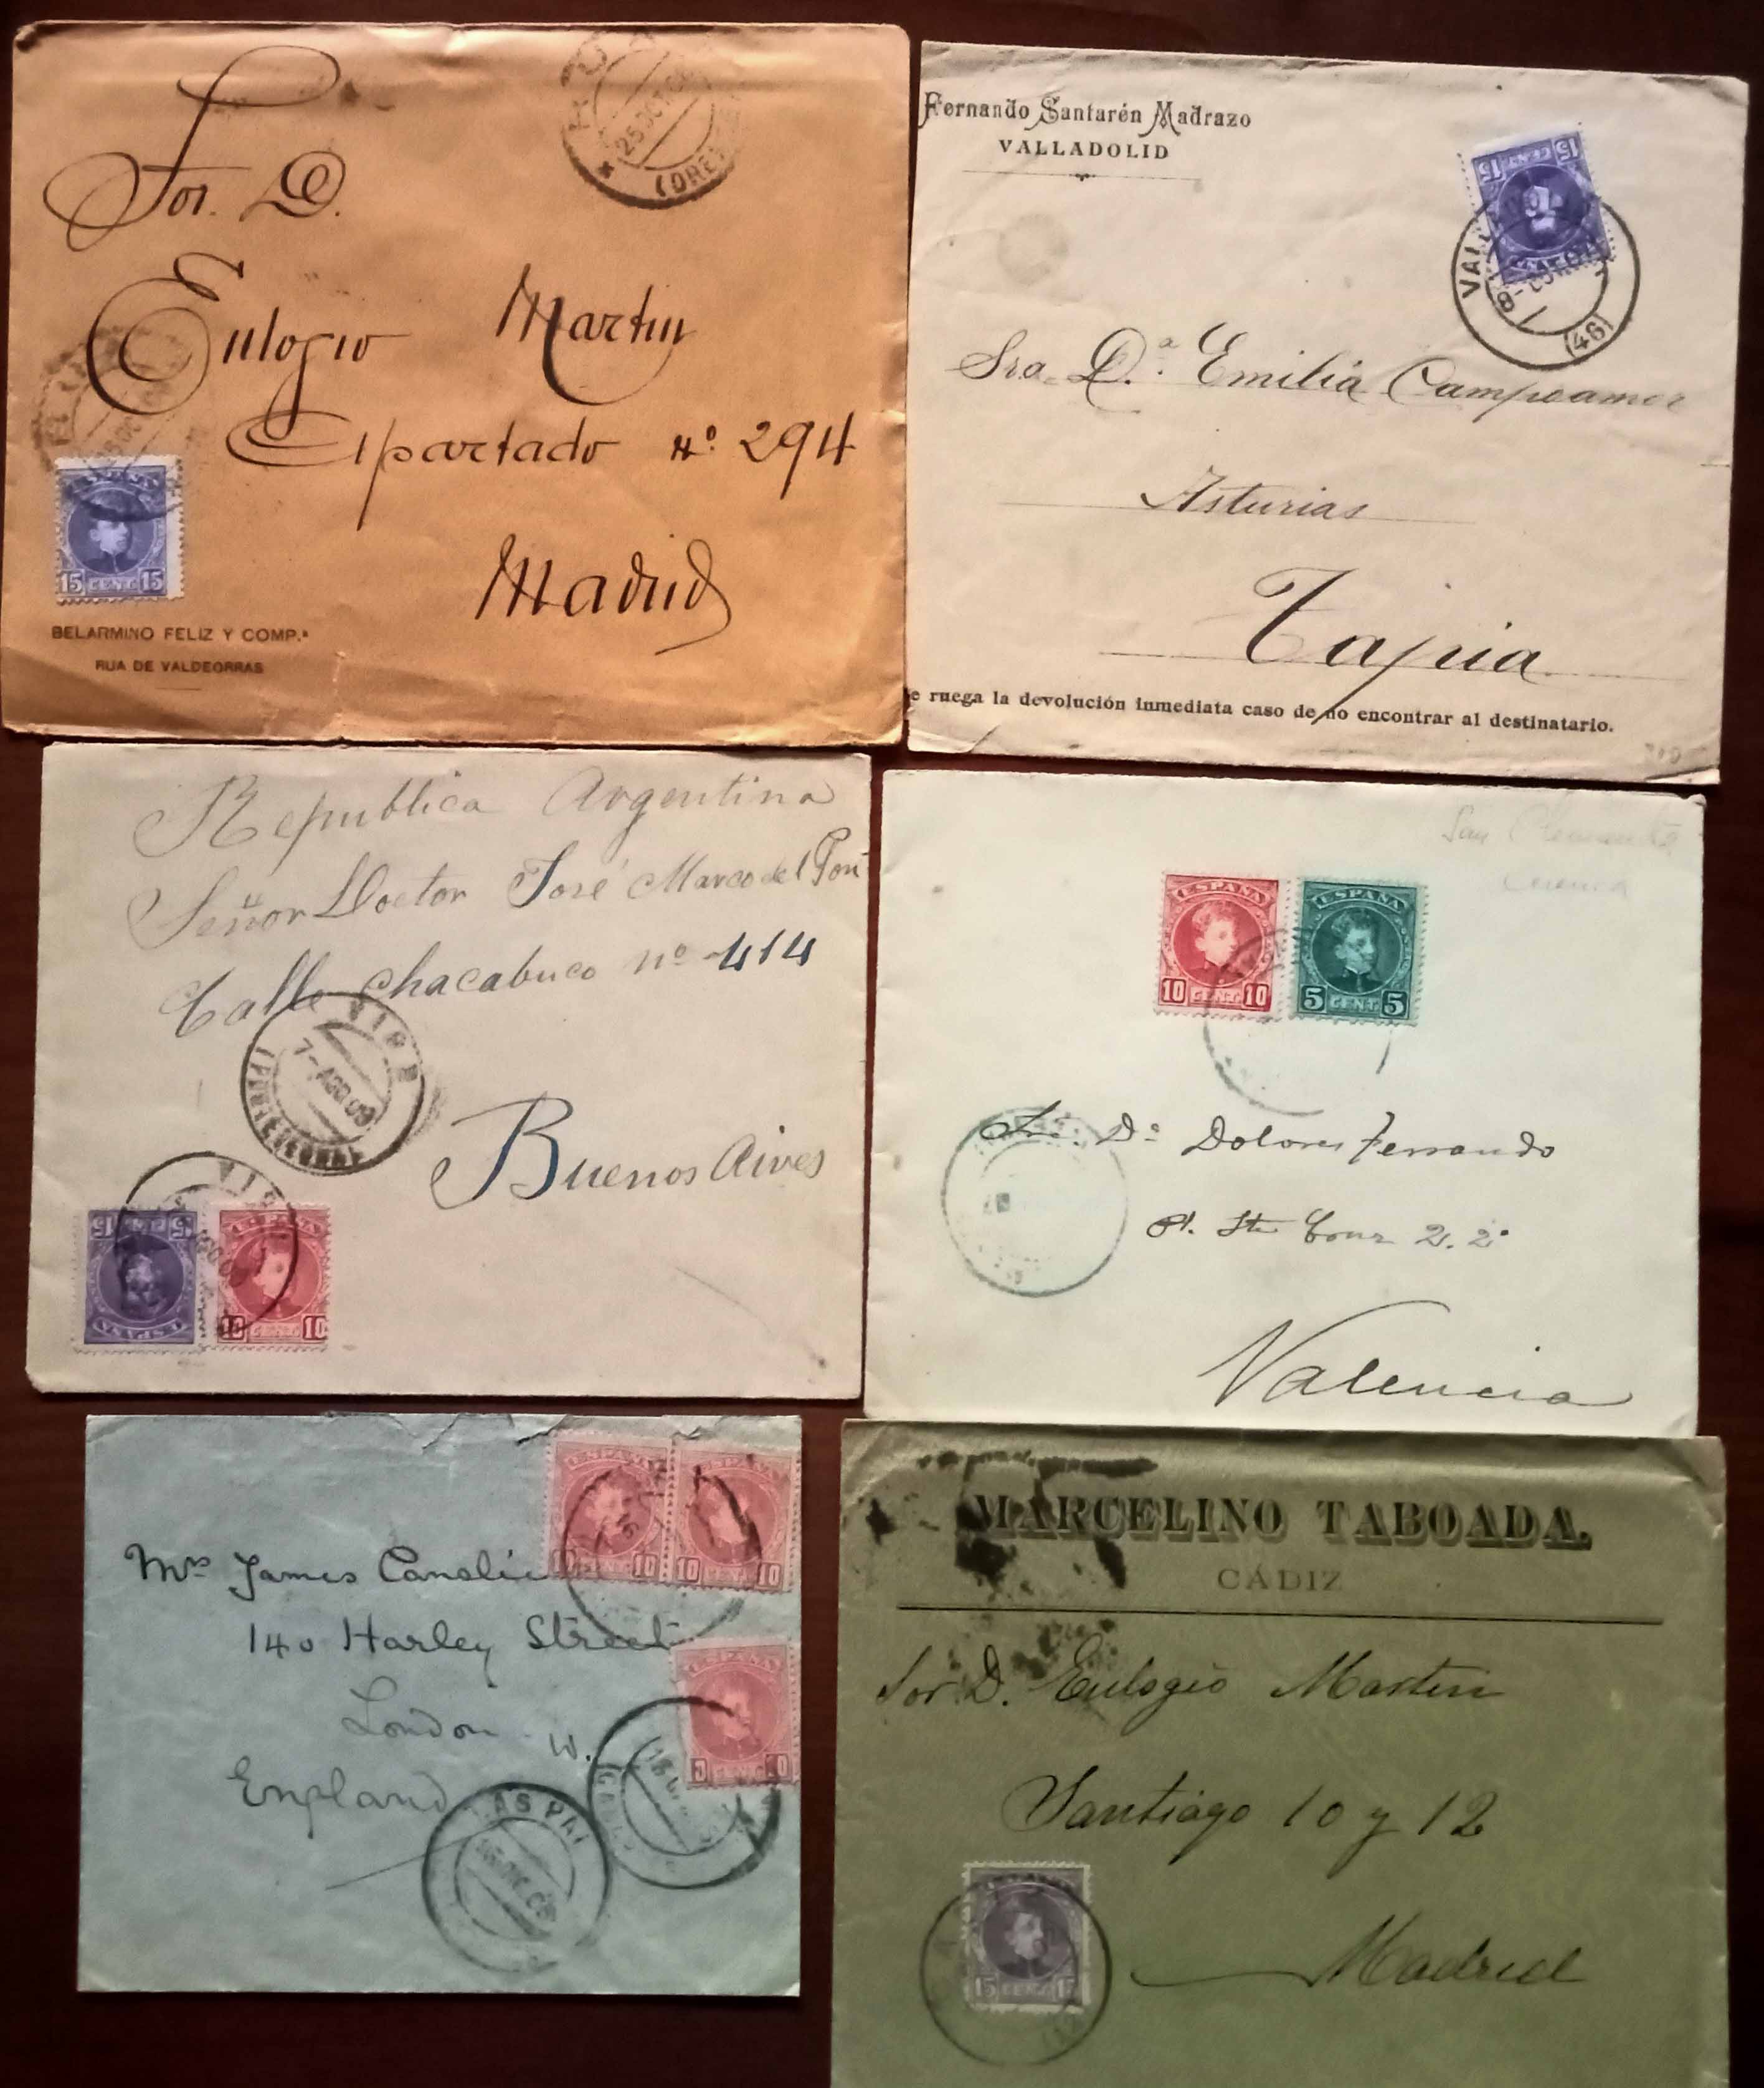 25 OCT 0
(ORE
Sor. D.
Eulogio Martin
Apartado nº 294
Madrid
ESPAÑA
15 CENT 15
BELARMINO FELIZ Y COMP.ª
RUA DE VALDEORRAS
Fernando Santarén Madrazo
VALLADOLID
15 CENT 15
VALL
8-
(46)
Sra. D.ª Emilia Campoamor
Asturias
Tapia
e ruega la devolución inmediata caso de no encontrar al destinatario.
Republica Argentina
Señor Doctor José Marco del Pon
Calle Chacabuco nº 414
VIGO
7-AGO 09
(PONTEVEDRA)
Buenos Aires
VIGO
15 CENT 15
ESPAÑA
ESPAÑA
10 CENT 10
San Clemente
Cuenca
ESPAÑA
10 CENT. 10
ESPAÑA
5 CENT 5
Sra. Dª Dolores Ferrando
Pl. Sta Cruz 2. 2º
Valencia
ESPAÑA
10 CENT 10
ESPAÑA
10 CENT 10
Mrs James
140 Harley Street
London W.
England
ESPAÑA
CENT 10
LAS PAL
DIC 08
MARCELINO TABOADA.
CÁDIZ
Sor D. Eulogio Martin
Santiago 10 y 12
Madrid
15 CENT 15